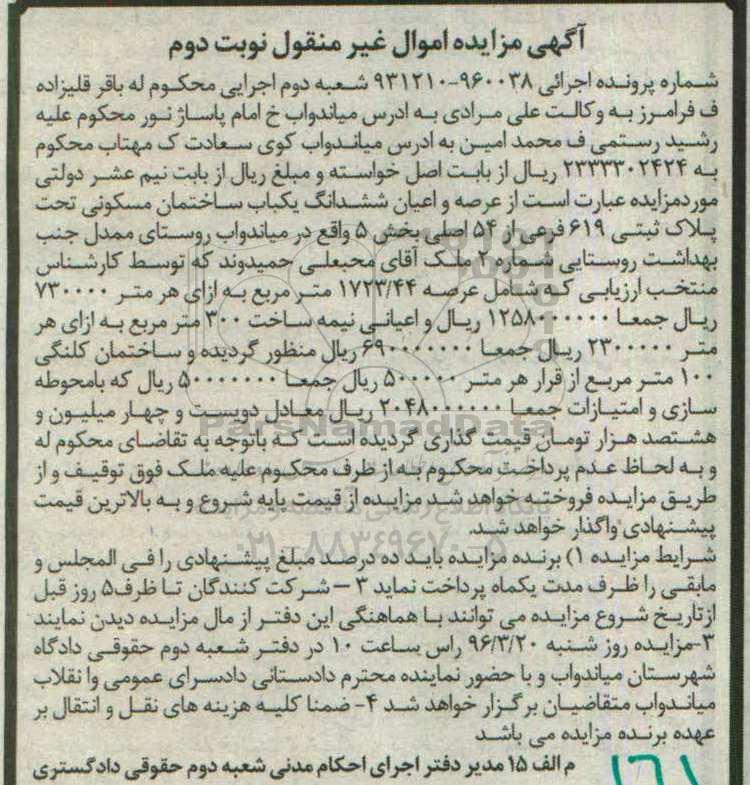 آگهی مزایده اموال غیر منقول نوبت دوم
شماره پرونده اجرائی ۹۶۰۰۳۸-۹۳۱۲۱۰ شعبه دوم اجرایی محکوم له باقر قلیزاده
ف فرامرز به وکالت علی مرادی به ادرس میاندواب خ امام پاساژ نور محکوم علیه
رشید رستمی ف محمد امین به ادرس میاندواب کوی سعادت ک مهتاب محکوم
به ۲۳۳۳۳۰۲۴۲۴ ریال از بابت اصل خواسته و مبلغ ریال از بابت نیم عشر دولتی
موردمزایده عبارت است از عرصه و اعیان ششدانگ یکباب ساختمان مسکونی تحت
پلاک ثبتی ۶۱۹ فرعی از ۵۴ اصلی بخش ۵ واقع در میاندواب روستای ممدل جنب
بهداشت روستایی شماره ۲ ملک آقای محبعلی حمیدوند که توسط کارشناس
منتخب ارزیابی که شامل عرصه ۱۷۲۳/۴۴ متر مربع به ازای هر متر ۷۳۰۰۰۰
ریال جمعا ۱۲۵۸۰۰۰۰۰۰ ریال و اعیانی نیمه ساخت ۳۰۰ متر مربع به ازای هر
متر ۲۳۰۰۰۰۰ ریال جمعا ۶۹۰۰۰۰۰۰۰ ریال منظور گردیده و ساختمان کلنگی
۱۰۰ متر مربع از قرار هر متر ۵۰۰۰۰۰ ریال جمعا ۵۰۰۰۰۰۰۰ ریال که بامحوطه
سازی و امتیازات جمعا ۲۰۴۸۰۰۰۰۰۰ ریال معادل دویست و چهار میلیون و
هشتصد هزار تومان قیمت گذاری گردیده است که باتوجه به تقاضای محکوم له
و به لحاظ عدم پرداخت محکوم به از طرف محکوم علیه ملک فوق توقیف و از
طریق مزایده فروخته خواهد شد مزایده از قیمت پایه شروع و به بالاترین قیمت
پیشنهادی واگذار خواهد شد.
شرایط مزایده ۱) برنده مزایده باید ده درصد مبلغ پیشنهادی را فی المجلس و
مابقی را ظرف مدت یکماه پرداخت نماید ۳ – شرکت کنندگان تا ظرف۵ روز قبل
ازتاریخ شروع مزایده می توانند با هماهنگی این دفتر از مال مزایده دیدن نمایند
۳-مزایده روز شنبه ۹۶/۳/۲۰ راس ساعت ۱۰ در دفتر شعبه دوم حقوقی دادگاه
شهرستان میاندواب و با حضور نماینده محترم دادستانی دادسرای عمومی وا نقلاب
میاندواب متقاضیان برگزار خواهد شد ۴- ضمنا کلیه هزینه های نقل و انتقال بر
عهده برنده مزایده می باشد
م الف ۱۵ مدیر دفتر اجرای احکام مدنی شعبه دوم حقوقی دادگستری
۱۶۱
ParsNamadData
۰۲۱-۸۸۳۴۹۶۷۰-۵